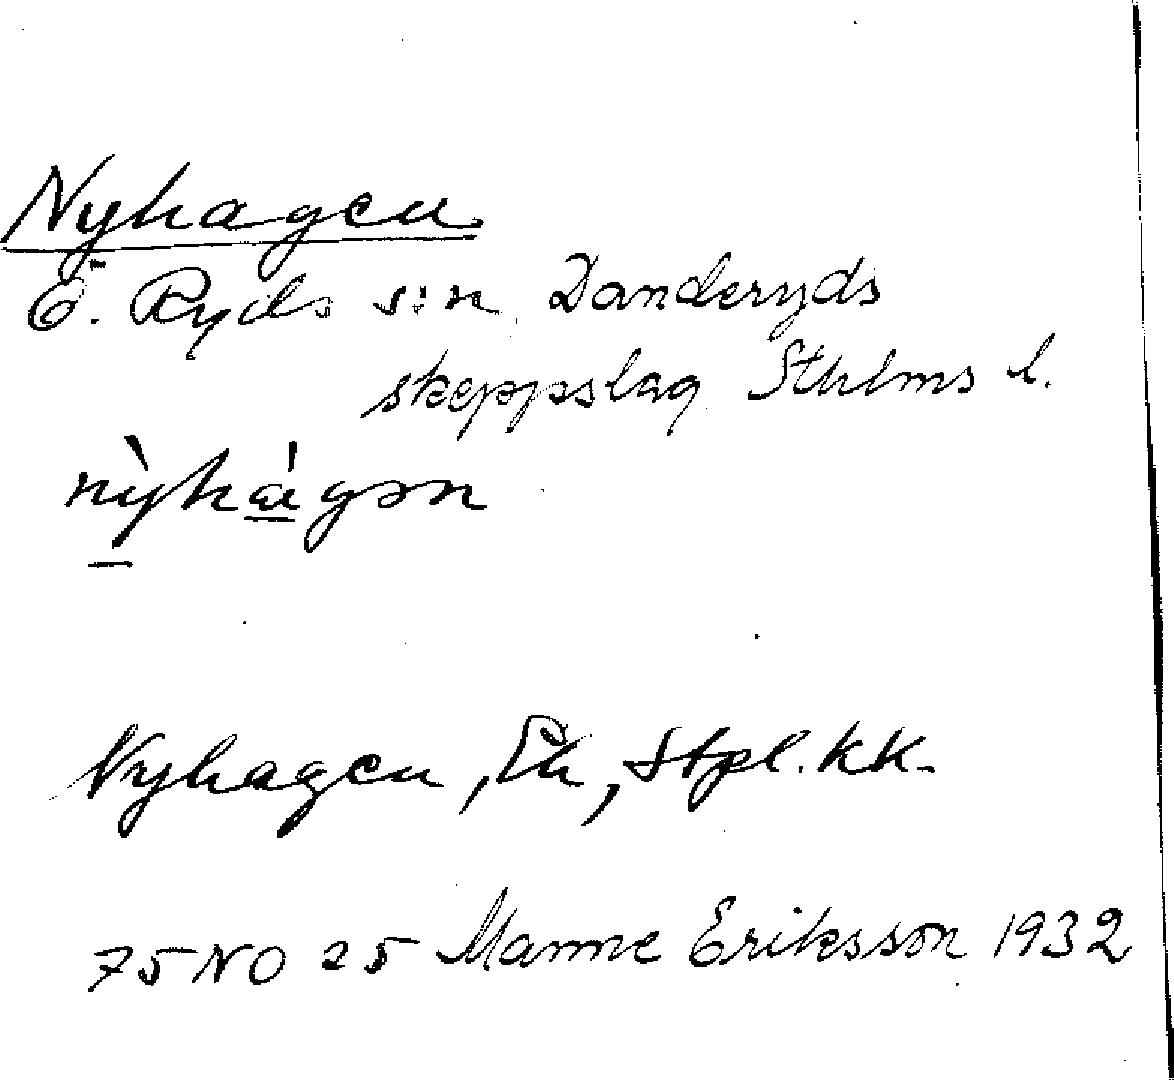 Nyhagen
Ö. Ryds s:n Danderyds
skeppslag Sthlms l.
nỳhágən
Nyhagen, Eh, Stpl. KK.
75 NO 25 Manne Eriksson 1932